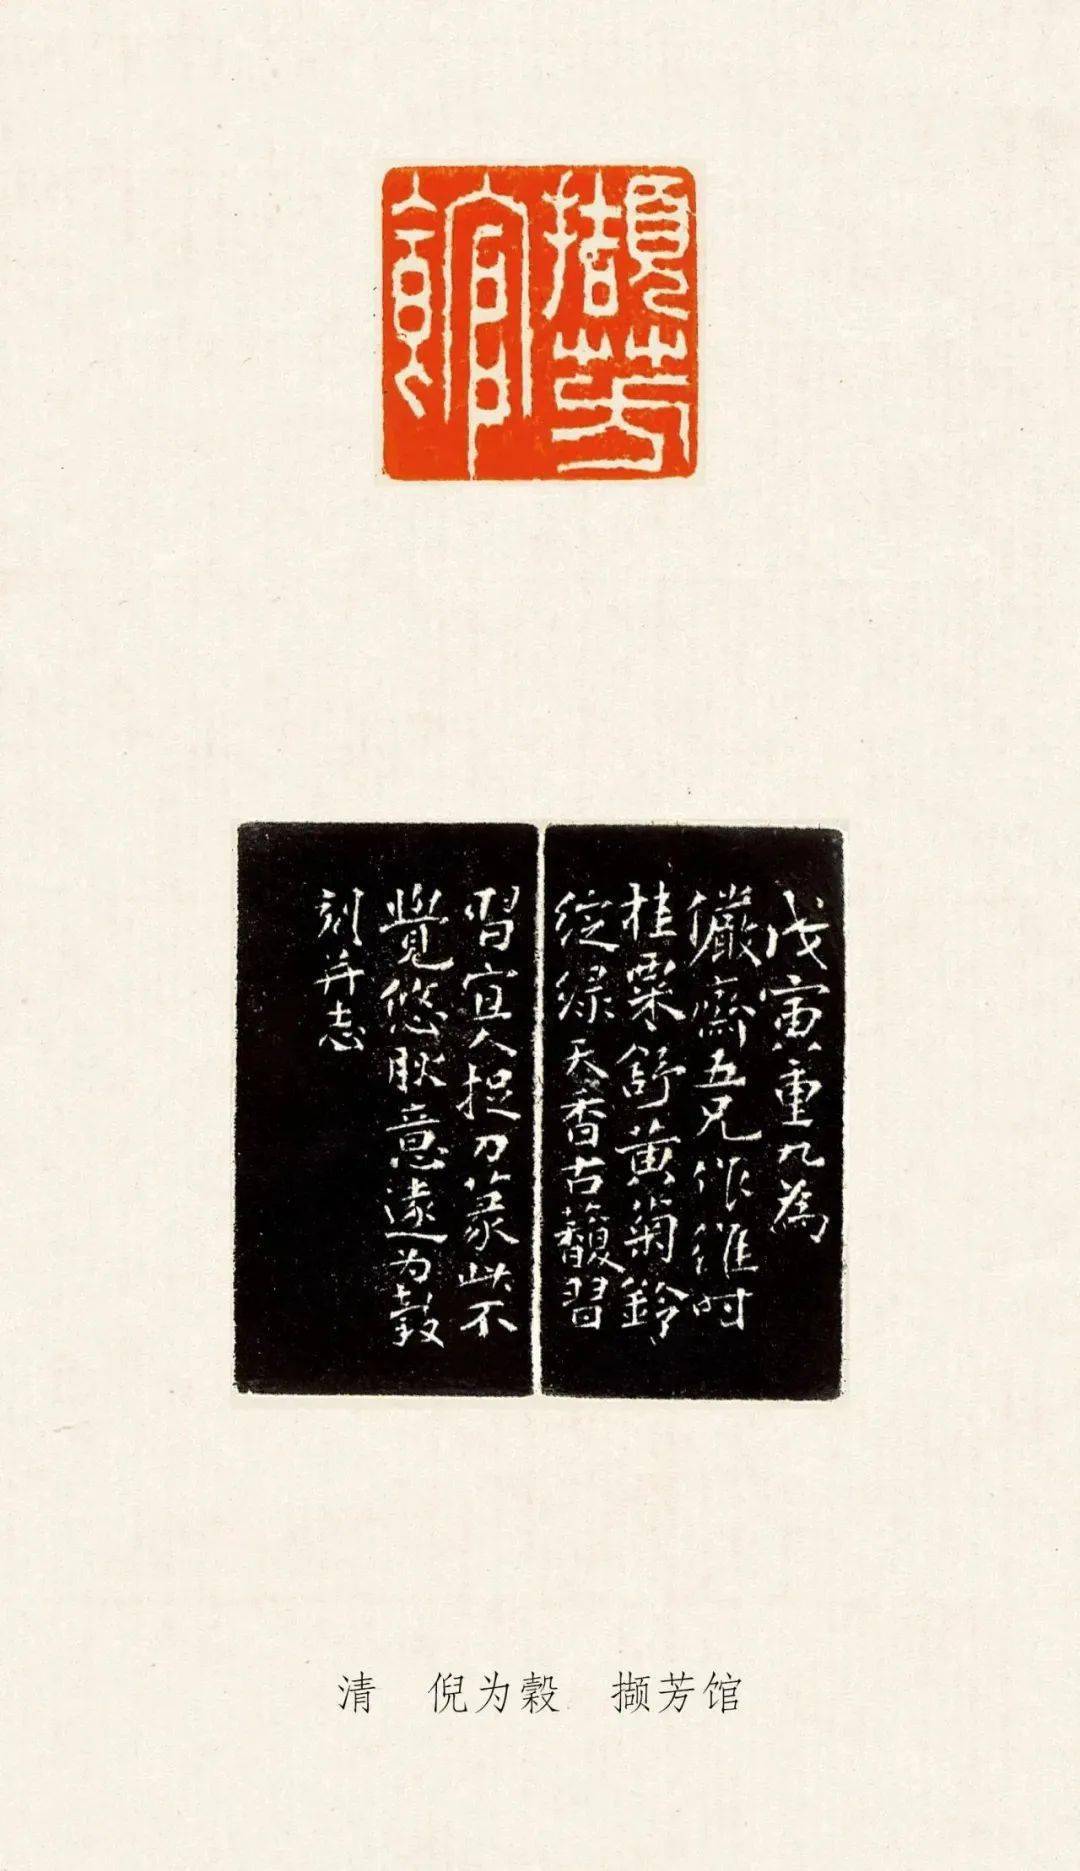 擷芳
館
戊寅重九為
儼齋五兄作維時
桂粟舒黃菊鈴
綻綠天香古馥習
習宜人捉刀篆此不
覺悠肰意遠为穀
刻并志
清 倪为穀 撷芳馆